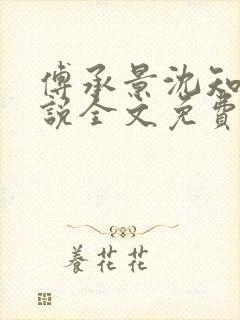 傅承景沈知
説全文免費
養花花